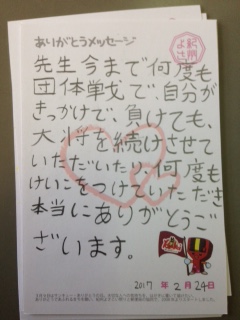 ありがとうメッセージ
先生今まで何度も
団体戦で、自分が
きっかけで、負けても、
大将を続けさせて
いただいたり、何度も
けいこをつけていただき
本当にありがとうご
ざいます。
2017 年 2 月 24 日